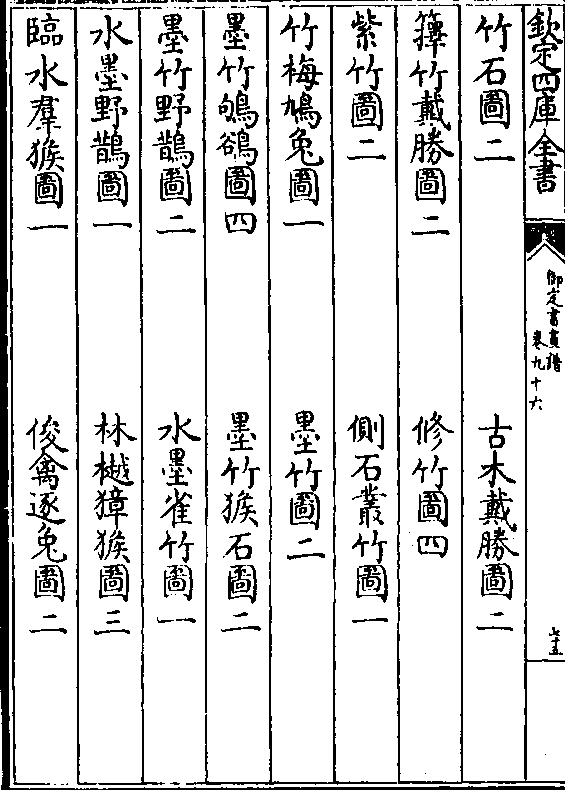 欽定四庫全書
御定書畫譜
卷九十六
七十五
竹石圖二　古木戴勝圖二
籜竹戴勝圖二　修竹圖四
紫竹圖二　側石叢竹圖一
竹梅鳩兔圖一　墨竹圖二
墨竹鵮鷚圖四　墨竹猴石圖二
墨竹野鵲圖二　水墨雀竹圖一
水墨野鵲圖一　林樾獐猴圖三
臨水羣猴圖一　俊禽逐兔圖二